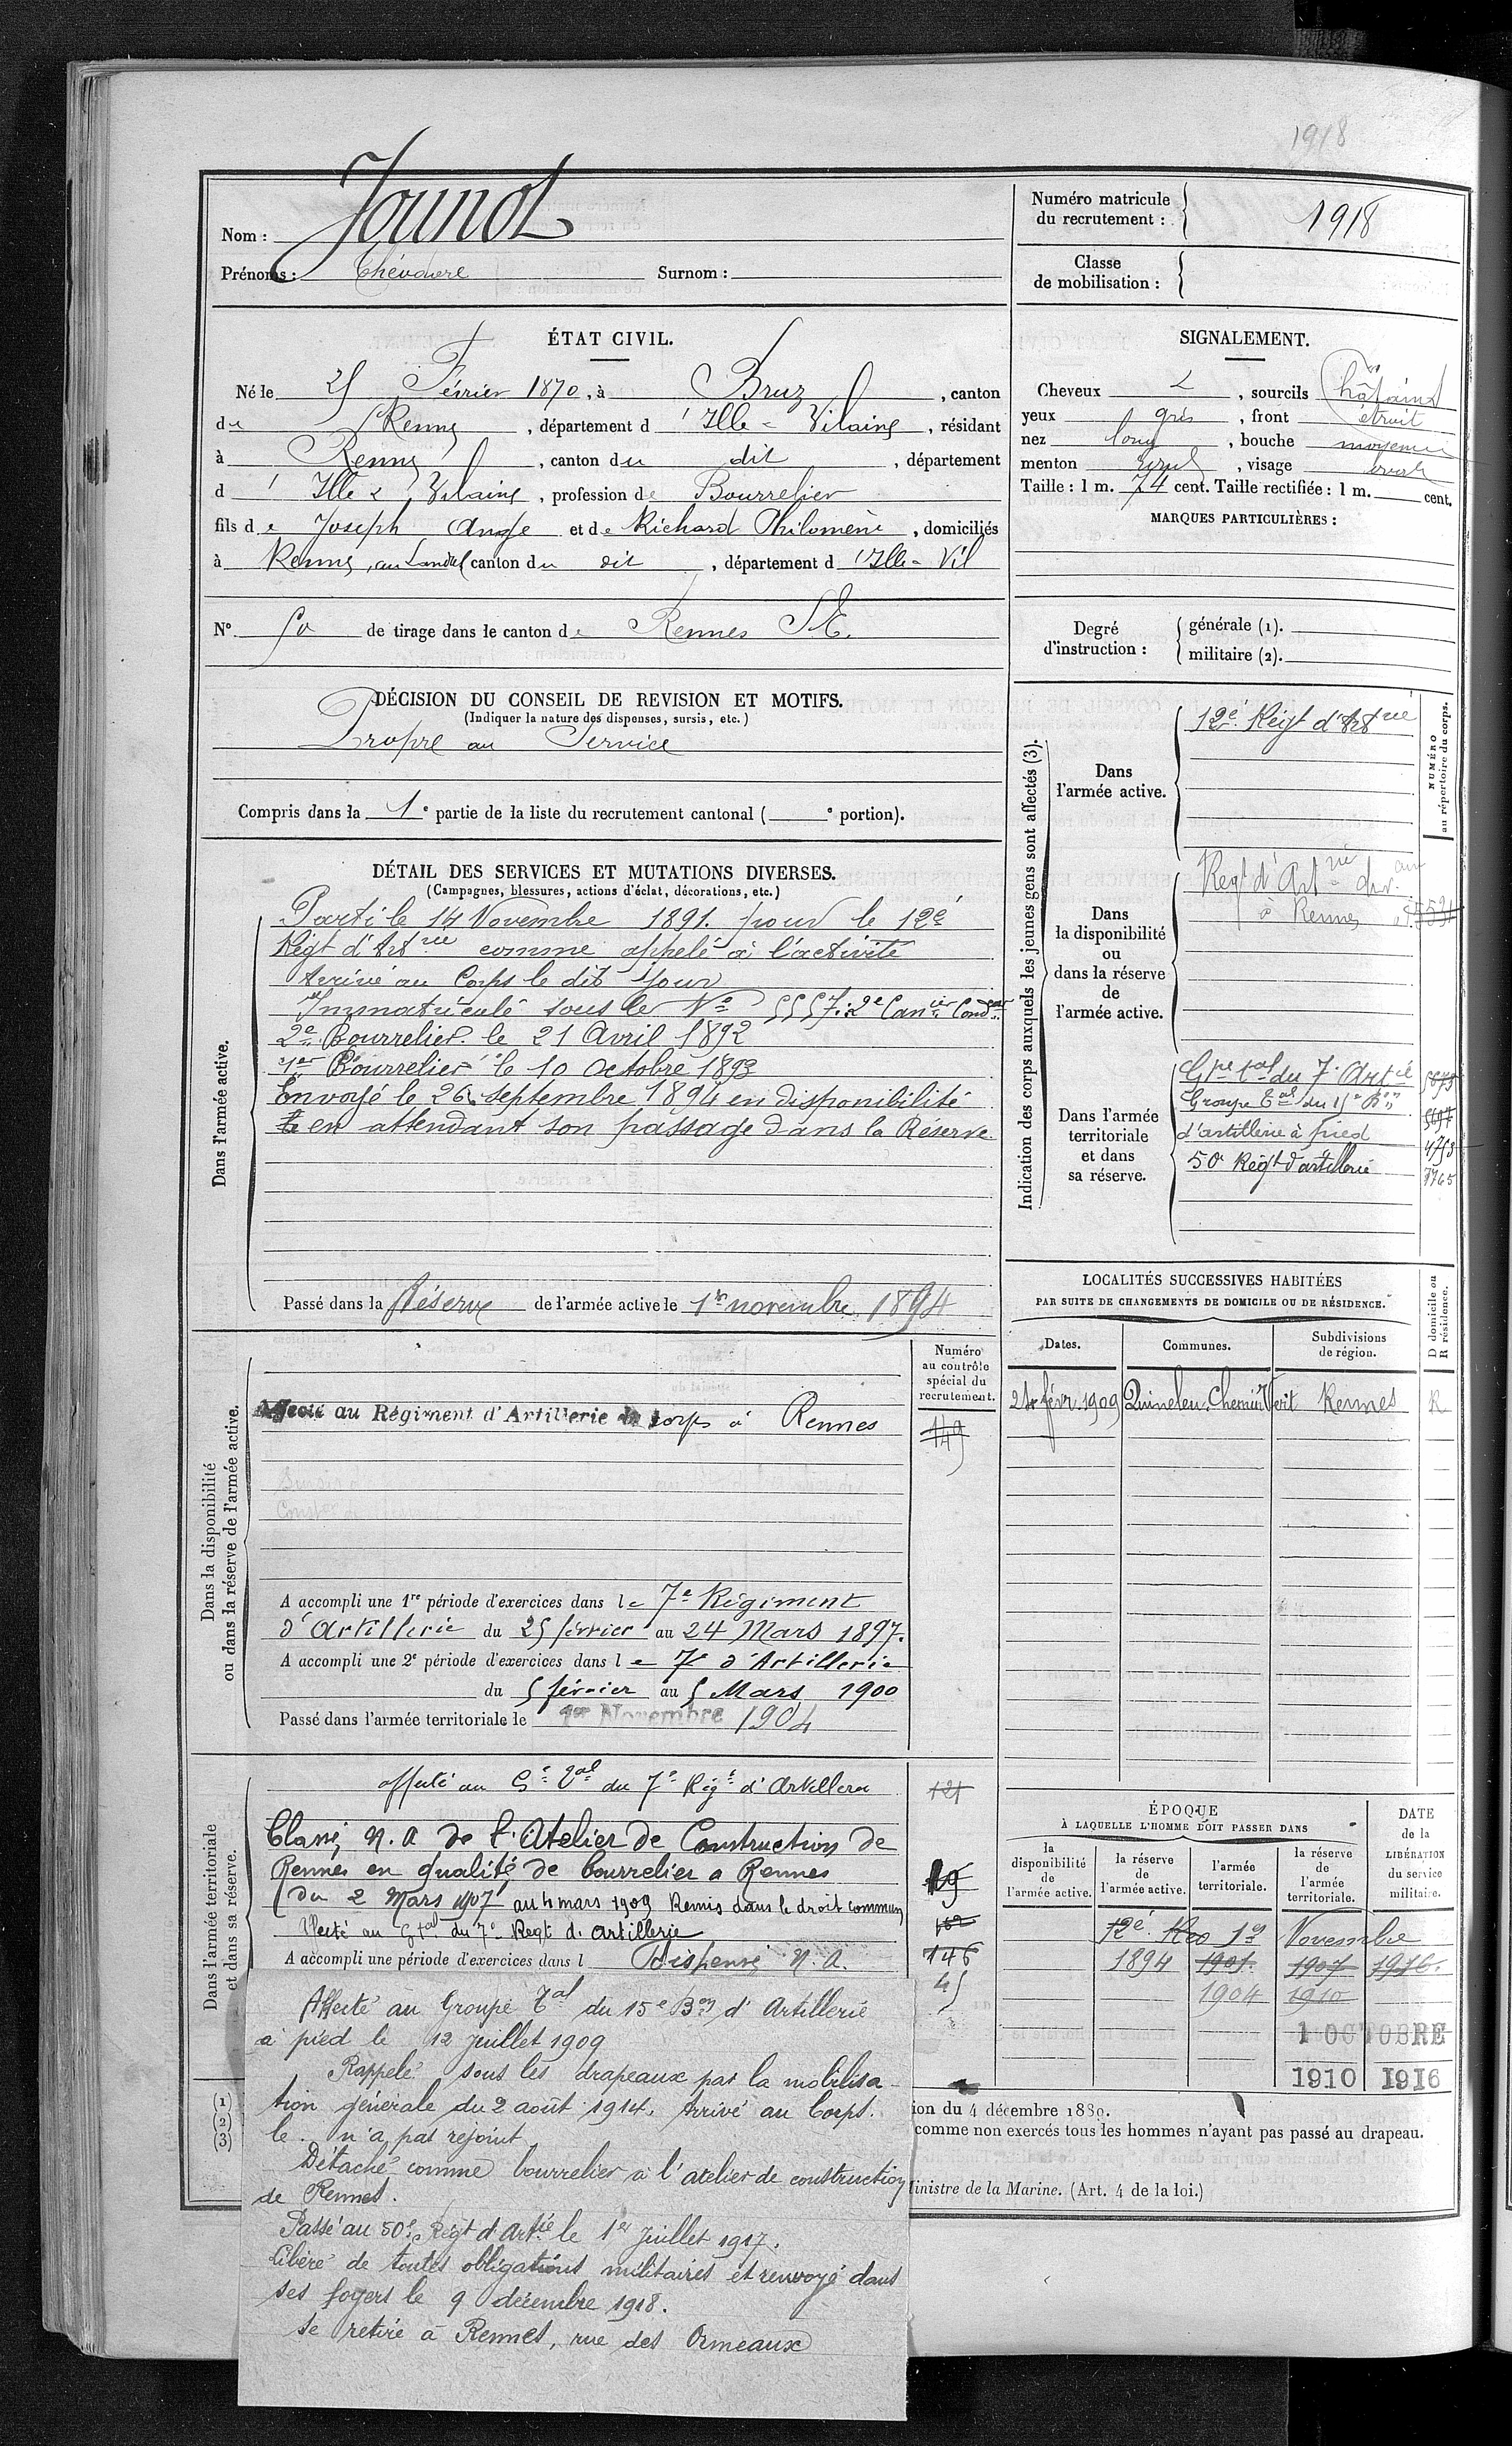 1918
Nom : Jounot
Prénoms : Surnom :
Numéro matricule du recrutement : 1918
Classe de mobilisation :
ÉTAT CIVIL.
Né le 25 Février 1870, à Bruz, canton
de Rennes, département d'Ille-Vilaine, résidant
à Rennes, canton du dit, département
d'Ille & Vilaine, profession de Bourrelier
fils de Joseph Ange et de Richard Philomène, domiciliés
à Rennes, au Landrel canton du dit, département d'Ille-Vil
N° 50 de tirage dans le canton de Rennes S.E.
SIGNALEMENT.
Cheveux , sourcils Châtains
yeux gris, front étroit
nez long, bouche moyenne
menton rond, visage ovale
Taille : 1 m. 74 cent. Taille rectifiée : 1 m. cent.
MARQUES PARTICULIÈRES :
Degré d'instruction : générale (1).
militaire (2).
DÉCISION DU CONSEIL DE REVISION ET MOTIFS.
(Indiquer la nature des dispenses, sursis, etc.)
Propre au Service
Compris dans la 1e partie de la liste du recrutement cantonal ( e portion).
DÉTAIL DES SERVICES ET MUTATIONS DIVERSES.
(Campagnes, blessures, actions d'éclat, décorations, etc.)
Dans l'armée active.
Parti le 14 Novembre 1891. pour le 12e
Régt d'Artrie comme appelé à l'activité
Arrivé au Corps le dit jour
Immatriculé sous le No 5557: 2e Canier Condr
2e Bourrelier le 21 Avril 1892
1er Bourrelier le 10 Octobre 1893
Envoyé le 26 septembre 1894 en disponibilité
en attendant son passage dans la Réserve.
Passé dans la Réserve de l'armée active le 1er novembre 1894
Indication des corps auxquels les jeunes gens sont affectés (3).
NUMÉRO au répertoire du corps.
Dans l'armée active.
12e Régt d'Artrie
Dans la disponibilité ou dans la réserve de l'armée active.
Regt d'Artrie
à Rennes
Dans l'armée territoriale et dans sa réserve.
Gpe tal du 7e Artie 5675
Groupe Tal du 15e Bon
d'artillerie à pied 4753
50e Régt d'artillerie 7765
LOCALITÉS SUCCESSIVES HABITÉES
PAR SUITE DE CHANGEMENTS DE DOMICILE OU DE RÉSIDENCE.
D domicile ou R résidence.
Dates. Communes. Subdivisions de région.
24 févr. 1909 Quineleu Chemin Vert Rennes R
Dans la disponibilité ou dans la réserve de l'armée active.
Numéro au contrôle spécial du recrutement.
Affecté au Régiment d'Artillerie de corps à Rennes 149
A accompli une 1re période d'exercices dans le 7e Régiment
d'Artillerie du 25 février au 24 Mars 1897.
A accompli une 2e période d'exercices dans le 7e d'Artillerie
du 5 février au 5 Mars 1900
Passé dans l'armée territoriale le 1er Novembre 1904
Dans l'armée territoriale et dans sa réserve.
affecté au Ge Tal du 7e Régt d'Artillerie 121
Classé N.A de l'Atelier de Construction de
Rennes en qualité de bourrelier a Rennes 19
(du 2 Mars 1907 au 4 mars 1909 Remis dans le droit commun
Affecté au Gtal du 7e Regt d'artillerie 162
A accompli une période d'exercices dans l Dispensé N.A. 146
45
Affecté au Groupe Tal du 15e Bon d'Artillerie
à pied le 12 juillet 1909
Rappelé sous les drapeaux par la mobilisa-
tion générale du 2 août 1914. Arrivé au Corps.
le . n'a pas rejoint
Détaché comme bourrelier à l'atelier de construction
de Rennes.
Passé au 50e Régt d'Artie le 1er Juillet 1917.
Libéré de toutes obligations militaires et renvoyé dans
ses foyers le 9 décembre 1918.
Se retire à Rennes, rue des Ormeaux
ÉPOQUE
À LAQUELLE L'HOMME DOIT PASSER DANS
DATE de la LIBÉRATION du service militaire.
la disponibilité de l'armée active. la réserve de l'armée active. l'armée territoriale. la réserve de l'armée territoriale.
1er Novembre
1894 1901 1907 1916.
1904 1910
1 OCTOBRE
1910 1916
(1)
(2)
(3)
ion du 4 décembre 1889.
comme non exercés tous les hommes n'ayant pas passé au drapeau.
Ministre de la Marine. (Art. 4 de la loi.)